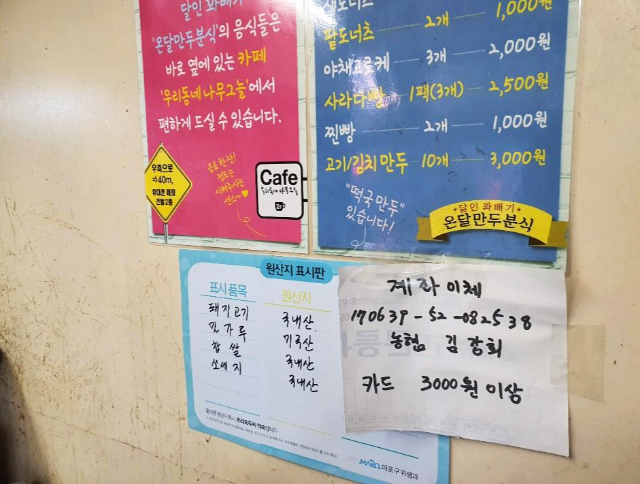 달인 꽈배기
'온달만두분식'의 음식들은
바로 옆에 있는 카페
'우리동네 나무그늘'에서
편하게 드실 수 있습니다.
우측으로
40m,
건물 2층
Cafe
우리동네 나무그늘
생도너츠 1,000원
팥도너츠 2개
야채고로케 3개 2,000원
사라다빵 1팩(3개) 2,500원
찐빵 2개 1,000원
고기/김치 만두 10개 3,000원
"떡국만두"
있습니다!
달인 꽈배기
온달만두분식
원산지 표시판
표시 품목 원산지
돼지고기 국내산
밀가루 미국산
찹쌀 국내산
쏘세지 국내산
마포구 위생과
계좌이체
170639-52-082538
농협 김강희
카드 3000원 이상